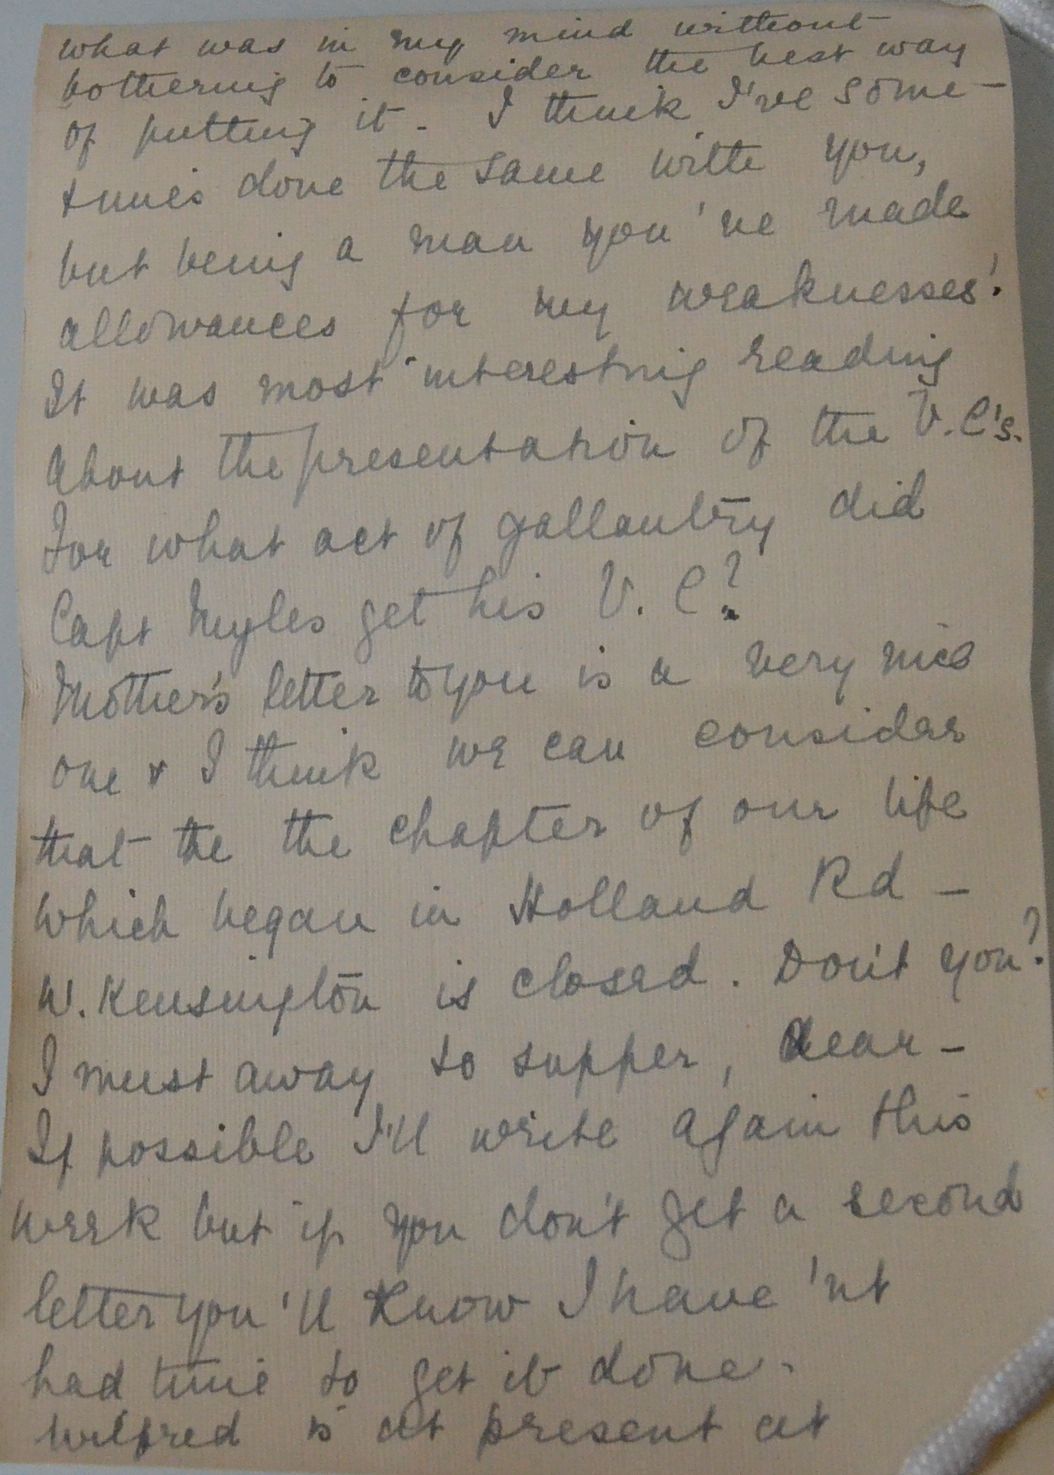 what was in my mind without
bothering to consider the best way
of putting it. I think I've some-
times done the same with you,
but being a man you've made
allowances for my weaknesses!
It was most interesting reading
about the presentation of the V.C's.
For what act of gallantry did
Capt Myles get his V.C?
Mother's letter to you is a very nice
one & I think we can consider
that the the chapter of our life
which began in Holland Rd -
W. Kensington is closed. Don't you?
I must away to supper, dear -
If possible I'll write again this
week but if you don't get a second
letter you'll know I have'nt
had time to get it done.
Wilfred is at present at